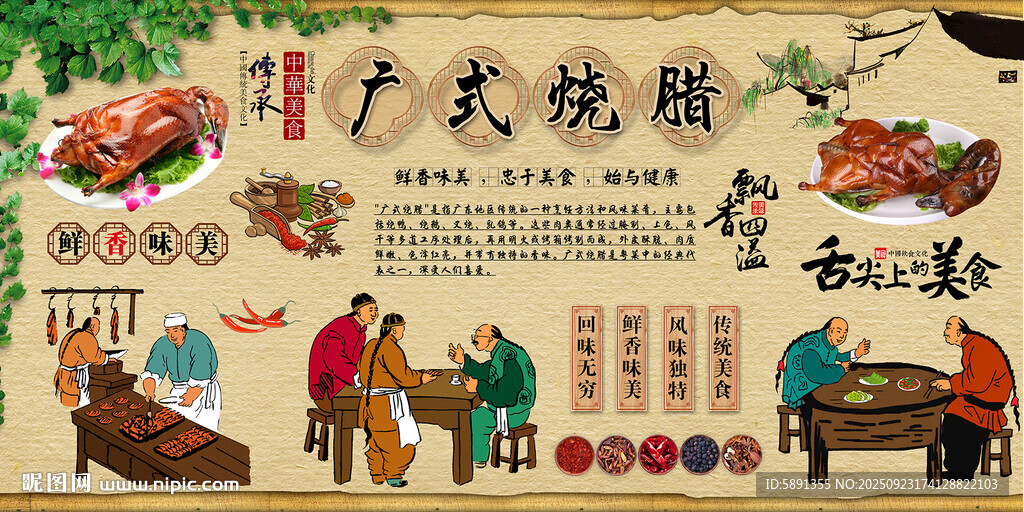 中國傳統美食文化
傳承
中華美食
文化
广式烧腊
鲜香味美，忠于美食，始与健康
"广式烧腊"是指广东地区传统的一种烹饪方法和风味菜肴，主要包
括烧鸭、烧鹅、叉烧、乳鸽等。这些肉类通常经过腌制、上色、风
干等多道工序处理后，再用明火或烤箱烤制而成，外皮酥脆、肉质
鲜嫩、色泽红亮，并带有独特的香味。广式烧腊是粤菜中的经典代
表之一，深受人们喜爱。
鲜香味美
飘香四溢
中國飲食文化
舌尖上的美食
回味无穷
鲜香味美
风味独特
传统美食
昵图网 www.nipic.com
ID:5891355 NO:20250923174128822103